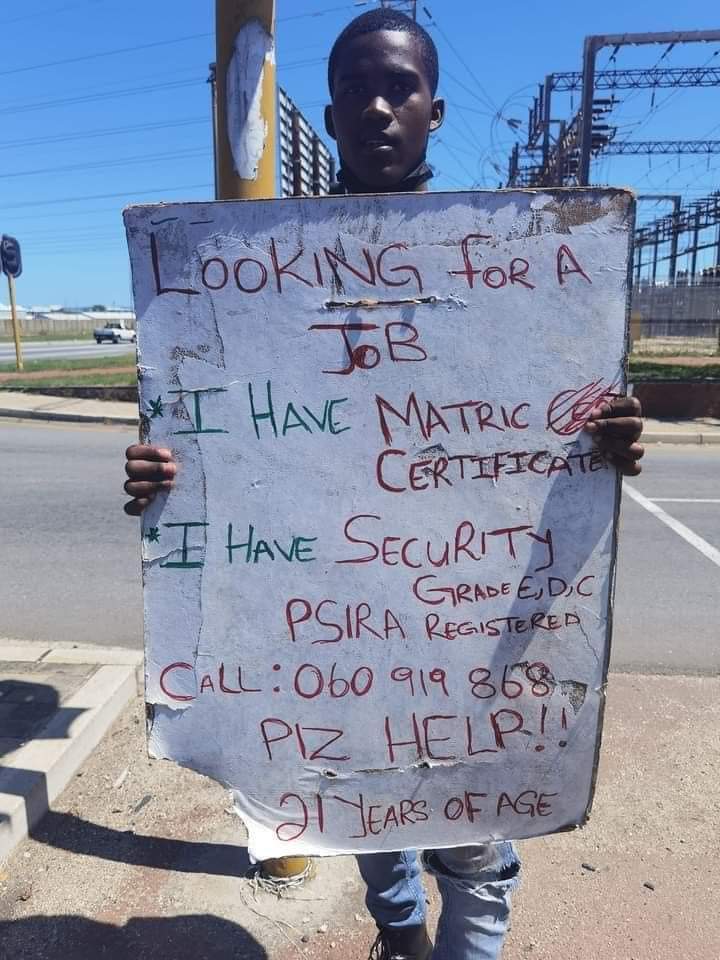 LOOKING FOR A
JOB
* I HAVE MATRIC
CERTIFICATE
* I HAVE SECURITY
GRADE E, D, C
PSIRA REGISTERED
CALL: 060 919 868
PlZ HELP!!
21 YEARS OF AGE